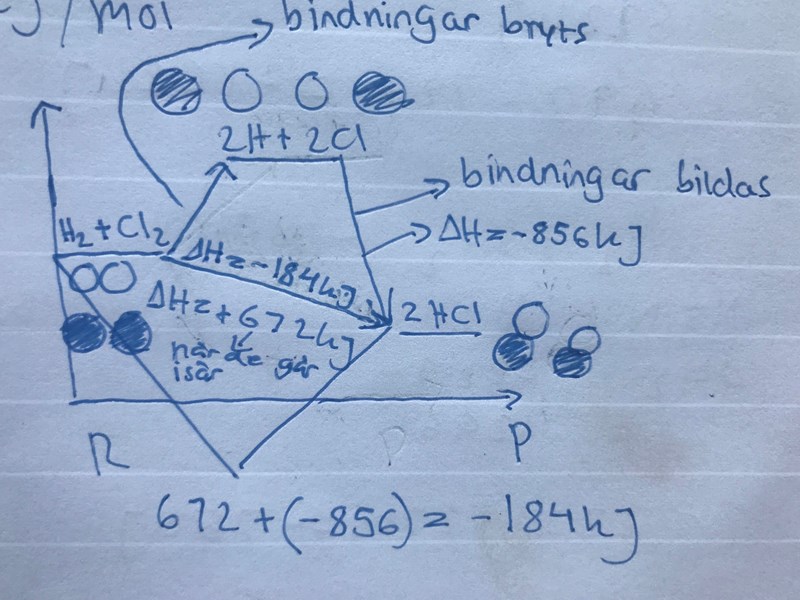 J/mol
bindningar bryts
2H + 2Cl
bindningar bildas
H₂ + Cl₂
ΔH = -856kJ
ΔH = -184kJ
ΔH = +672kJ
när de går
isär
2 HCl
R
P
P
672 + (-856) = -184kJ